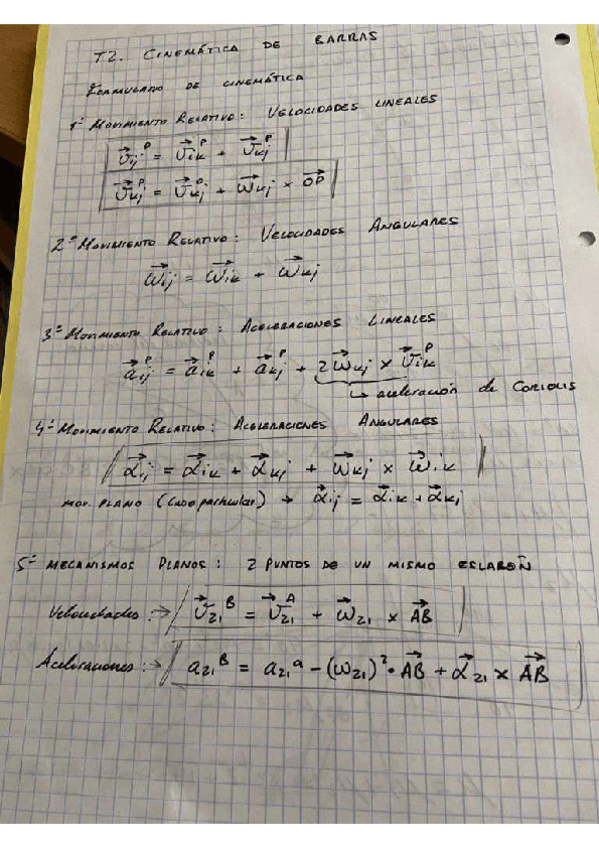 T2. CINEMÁTICA DE BARRAS
FORMULARIO DE CINEMÁTICA
1º MOVIMIENTO RELATIVO: VELOCIDADES LINEALES
$\vec{v}_{ij}^{P} = \vec{v}_{ik}^{P} + \vec{v}_{kj}^{P}$
$\vec{v}_{kj}^{P} = \vec{v}_{kj}^{O} + \vec{\omega}_{kj} \times \vec{OP}$
2º MOVIMIENTO RELATIVO: VELOCIDADES ANGULARES
$\vec{\omega}_{ij} = \vec{\omega}_{ik} + \vec{\omega}_{kj}$
3º MOVIMIENTO RELATIVO: ACELERACIONES LINEALES
$\vec{a}_{ij}^{P} = \vec{a}_{ik}^{P} + \vec{a}_{kj}^{P} + 2\vec{\omega}_{kj} \times \vec{v}_{ik}^{P}$
↳ aceleración de CORIOLIS
4º MOVIMIENTO RELATIVO: ACELERACIONES ANGULARES
$\vec{\alpha}_{ij} = \vec{\alpha}_{ik} + \vec{\alpha}_{kj} + \vec{\omega}_{kj} \times \vec{\omega}_{ik}$
MOV. PLANO (Caso particular) → $\vec{\alpha}_{ij} = \vec{\alpha}_{ik} + \vec{\alpha}_{kj}$
5º MECANISMOS PLANOS: 2 PUNTOS DE UN MISMO ESLABÓN
Velocidades: → $\vec{v}_{21}^{B} = \vec{v}_{21}^{A} + \vec{\omega}_{21} \times \vec{AB}$
Aceleraciones: → $a_{21}^{B} = a_{21}^{a} - (\omega_{21})^{2} \cdot \vec{AB} + \vec{\alpha}_{21} \times \vec{AB}$